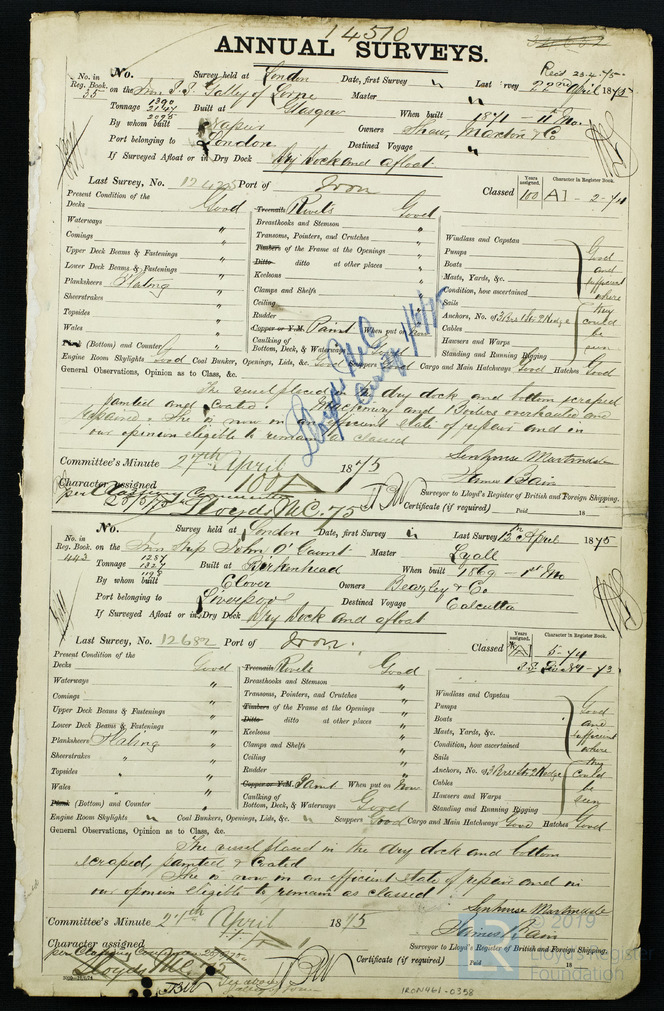 14510
ANNUAL SURVEYS.
Recd 23.4/75
No. in Reg. Book. 35
No. Survey held at London Date, first Survey " Last Survey 22nd April 1875
on the Iron S.S. Galley of Lorne Master "
Tonnage 1390 2147 2095 Built at Glasgow When built 1871 -
By whom built Owners Shaw, Maxton & Co
Port belonging to London Destined Voyage "
If Surveyed Afloat or in Dry Dock Dry Dock and afloat
Last Survey, No. Port of Iron Classed
Years assigned. 100 Character in Register Book. A1 -
Present Condition of the
Decks Good
Treenails Rivets Good
Waterways "
Breasthooks and Stemson "
Comings "
Transoms, Pointers, and Crutches "
Upper Deck Beams & Fastenings "
Timbers of the Frame at the Openings "
Lower Deck Beams & Fastenings "
Ditto ditto at other places "
Planksheers Plating "
Keelsons "
Sheerstrakes "
Clamps and Shelfs "
Topsides "
Ceiling "
Wales "
Rudder "
Plank (Bottom) and Counter "
Copper or Y.M. Paint When put on
Caulking of Bottom, Deck, & Waterways Good
Windlass and Capstan
Pumps
Boats
Masts, Yards, &c.
Condition, how ascertained
Sails
Anchors, No. of
Cables
Hawsers and Warps
Standing and Running Rigging
Good and sufficient where they could be seen
Engine Room Skylights Good Coal Bunker, Openings, Lids, &c. Good Scuppers Good Cargo and Main Hatchways Good Hatches Good
General Observations, Opinion as to Class, &c.
The vessel placed in dry dock and bottom scraped
painted and coated. Machinery and Boilers overhauled and
repaired. She is now in an efficient state of repair and in
our opinion eligible to remain as classed
Lloyds M.C.
Committee's Minute 27th April 1875
Senhouse Martindale
James Bain
Character assigned 100A
Surveyor to Lloyd's Register of British and Foreign Shipping.
per Classing Committee
Lloyds M.C. /75
Certificate (if required) Paid 18
No. in Reg. Book. 443
No. Survey held at London Date, first Survey " Last Survey April 1875
on the Iron Ship John O'Gaunt Master Lyall
Tonnage 1287 Built at Birkenhead When built 1869 - 1st Mo
By whom built Clover Owners Beazley & Co
Port belonging to Liverpool Destined Voyage Calcutta
If Surveyed Afloat or in Dry Dock Dry Dock and afloat
Last Survey, No. 12682 Port of Iron. Classed
Years assigned. Character in Register Book. 5-74
Present Condition of the
Decks Good
Treenails Rivets Good
Waterways "
Breasthooks and Stemson "
Comings "
Transoms, Pointers, and Crutches "
Upper Deck Beams & Fastenings "
Timbers of the Frame at the Openings "
Lower Deck Beams & Fastenings "
Ditto ditto at other places "
Planksheers Plating "
Keelsons "
Sheerstrakes "
Clamps and Shelfs "
Topsides "
Ceiling "
Wales "
Rudder "
Plank (Bottom) and Counter "
Copper or Y.M. Paint When put on Now
Caulking of Bottom, Deck, & Waterways Good
Windlass and Capstan
Pumps
Boats
Masts, Yards, &c.
Condition, how ascertained
Sails
Anchors, No. of
Cables
Hawsers and Warps
Standing and Running Rigging
Good and sufficient where they could be seen
Engine Room Skylights " Coal Bunkers, Openings, Lids, &c. " Scuppers Good Cargo and Main Hatchways Good Hatches Good
General Observations, Opinion as to Class, &c.
The vessel placed in the dry dock and bottom
scraped, painted & coated
She is now in an efficient state of repair and in
our opinion eligible to remain as classed
Committee's Minute 27th April 1875
Senhouse Martindale
James Bain
Character assigned
Surveyor to Lloyd's Register of British and Foreign Shipping.
per Classing Committee
Certificate (if required) Paid 18
© 2019
Lloyd's Register
Foundation
IRON461-0358